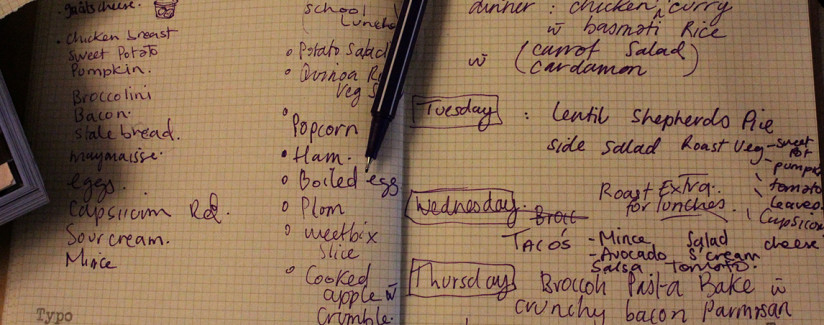 goats cheese.
. chicken breast
sweet Potato
Pumpkin.
Broccolini
Bacon.
stale bread.
maymaisse.
eggs.
Capsiicum Red.
Sour cream.
Mince
Typo
school
Lunche
Potato Salad
Quinoa
Veg
Popcorn
Ham.
Boiled egg
Plom
weetbix
Slice
Cooked
apple w̄
Crumble.
dinner : chicken curry
w̄ basmati Rice
w̄ (carrot Salad
cardamon)
Tuesday : Lentil Shepherds Pie
side salad Roast Veg - sweet
pot
- pumpk
tomato
leaves
Capsicon
cheese
Roast Extra.
for lunches.
Wednesday.
TACO'S - Mince Salad
- Avocado s'cream
Salsa Tomato.
Thursday Broccoli Pasta Bake w̄
crunchy bacon Parmisan